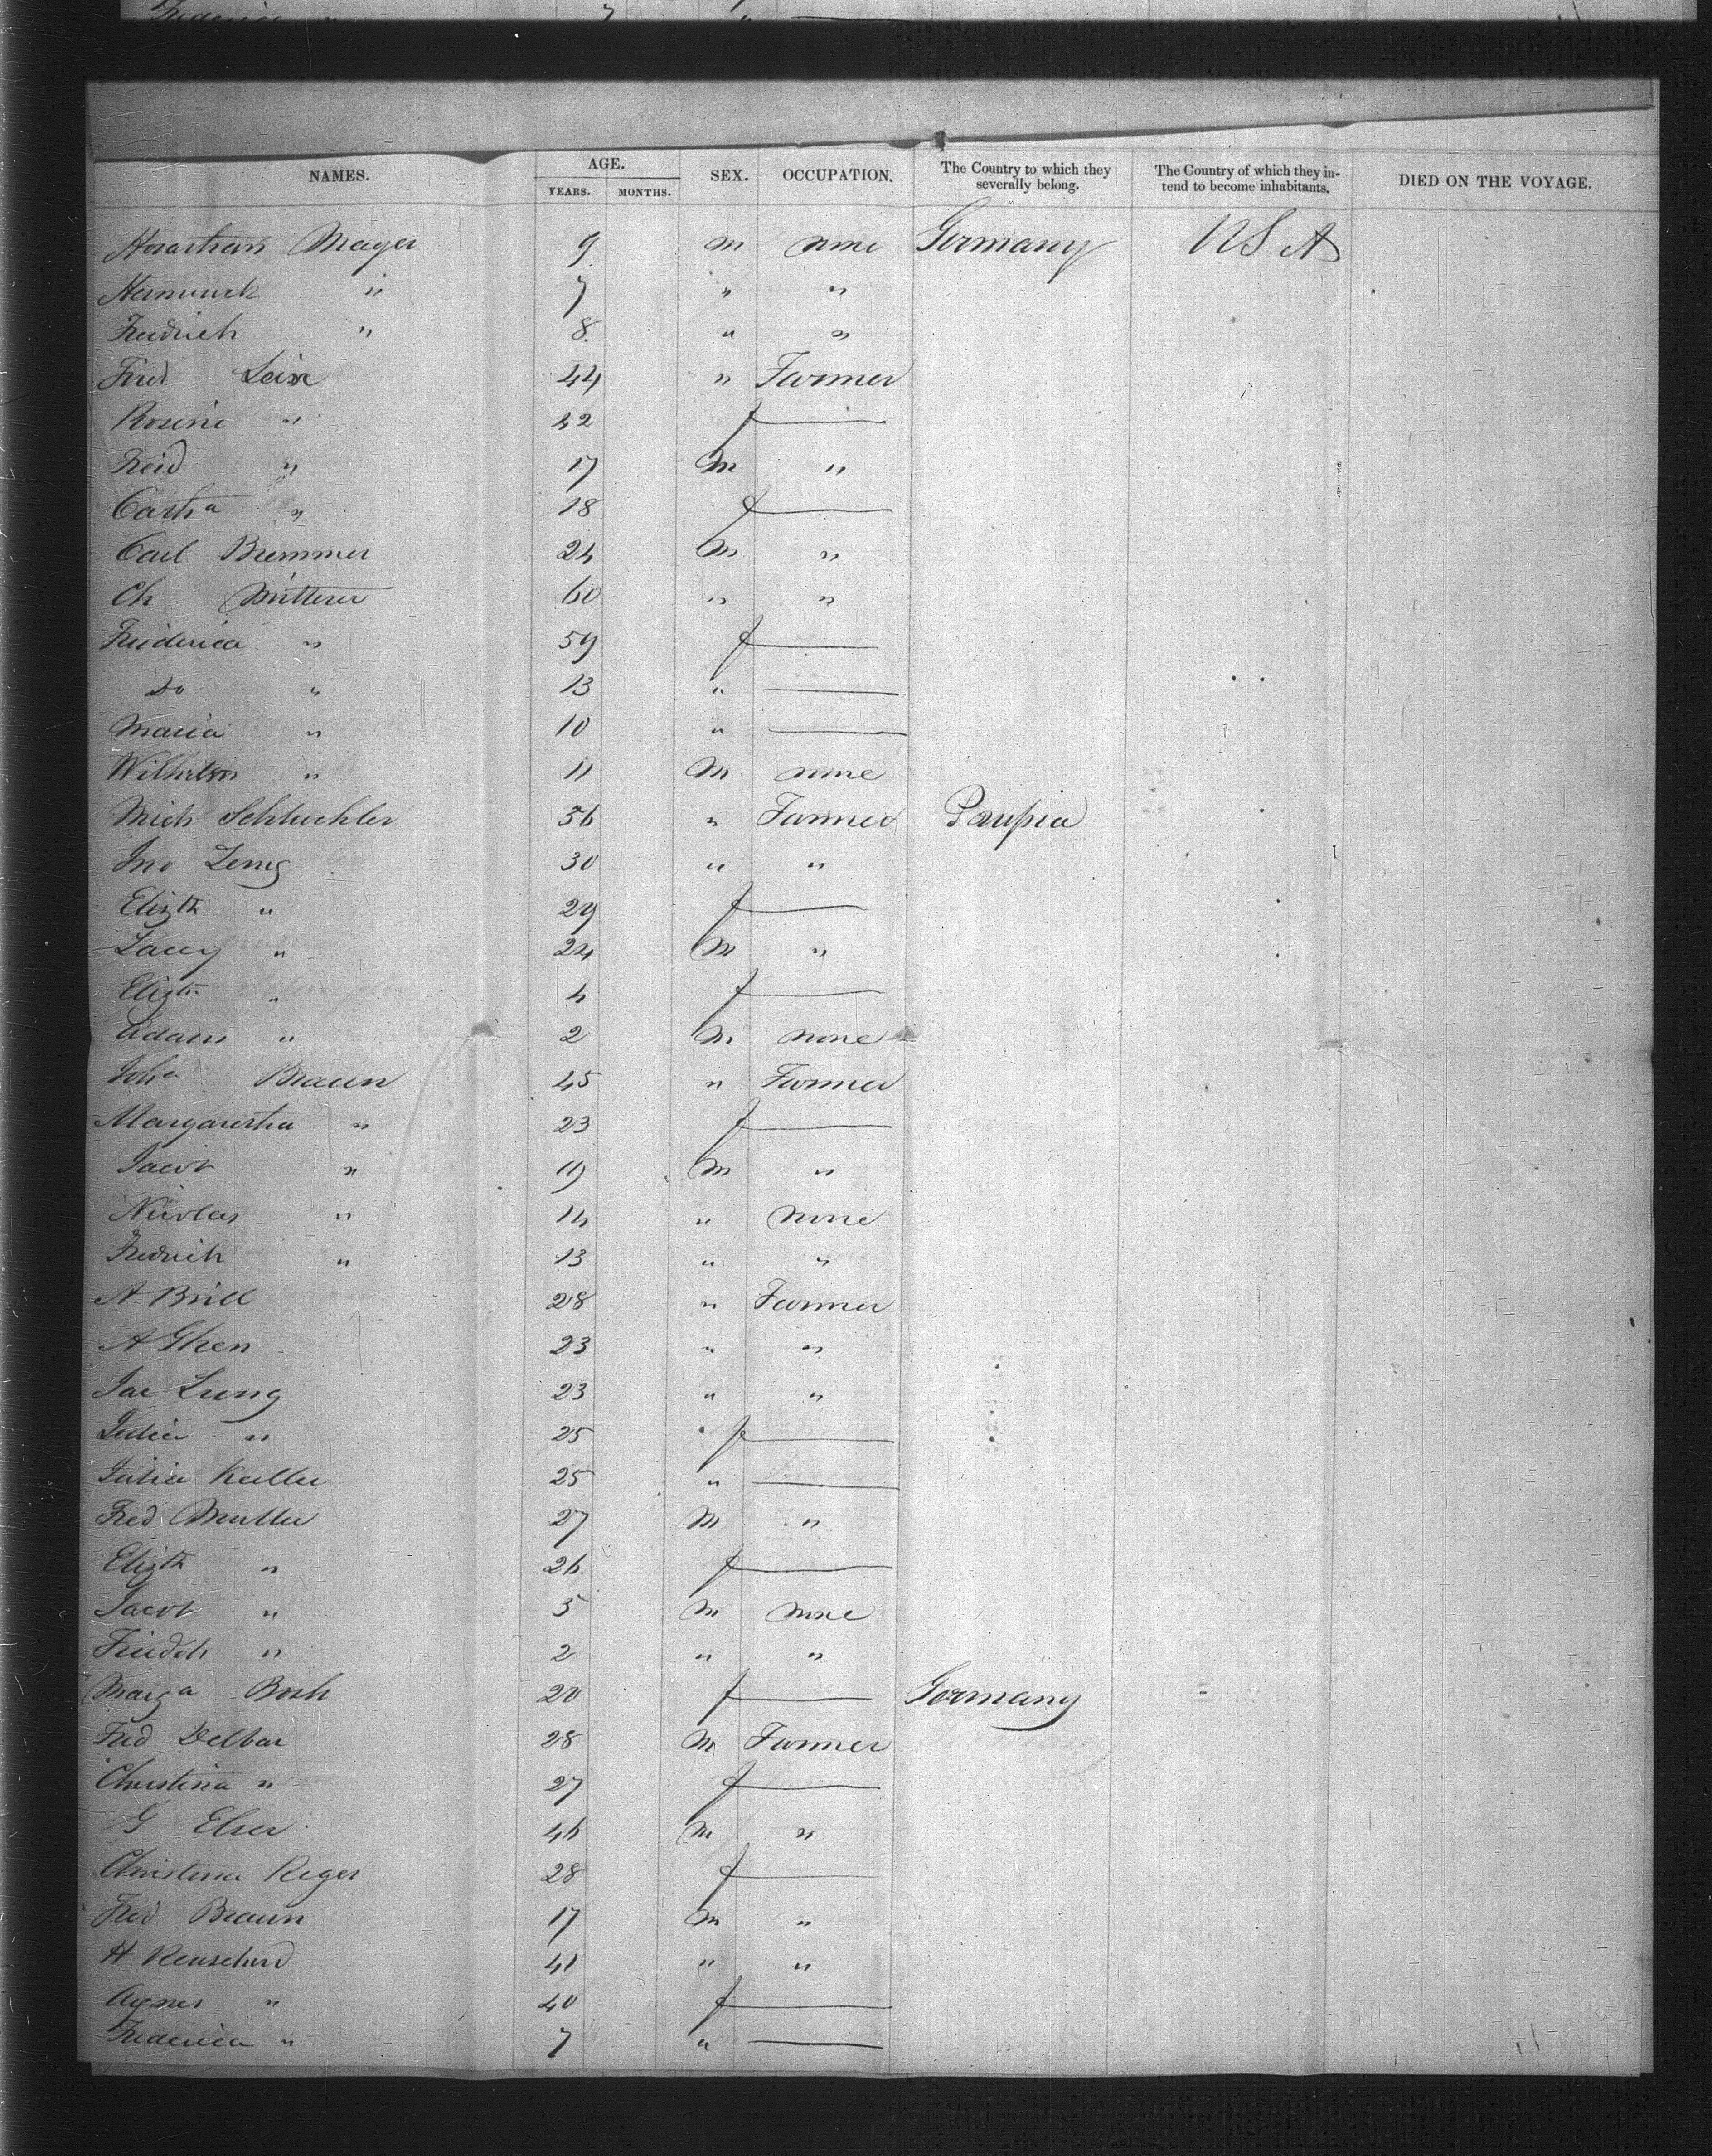 NAMES. AGE. YEARS. MONTHS. SEX. OCCUPATION. The Country to which they severally belong. The Country of which they intend to become inhabitants. DIED ON THE VOYAGE.
Mayer 9 m none Germany U S A
" 7 " "
Fredrich " 8 " "
Fred 44 " Farmer
Rosine " 42 f
Fred " 17 m "
Cath a " 18 f
Carl Bremmer 24 m "
Ch Mitterer 60 " "
Friederica " 59 f
Do " 13 "
Maria " 10 "
Wilhelm " 11 m none
Mich Schluchler 56 " Farmer
Jno Zeng 30 " "
Elizth " 29 f
" 24 m "
Elizth " 4 f
Adam " 2 m none
Braun 45 " Farmer
Margaretha " 23 f
Jacob " 19 m "
Nicolas " 14 " none
Fredrich " 13 " "
A Brill 28 " Farmer
A Ghen 23 " "
Jac Lung 23 " "
" 25 f
Julia Keller 25 "
Fred Muller 27 m "
Elizth " 26 f
Jacob " 5 m none
Friedch " 2 " "
Marg a Bosh 20 f Germany "
Fred Delbar 28 m Farmer
Christina " 27 f
G Elser 46 m "
Christina Reger 28 f
Fred Braun 17 m "
H 41 " "
Agnes " 40 f
Frederica " 7 "